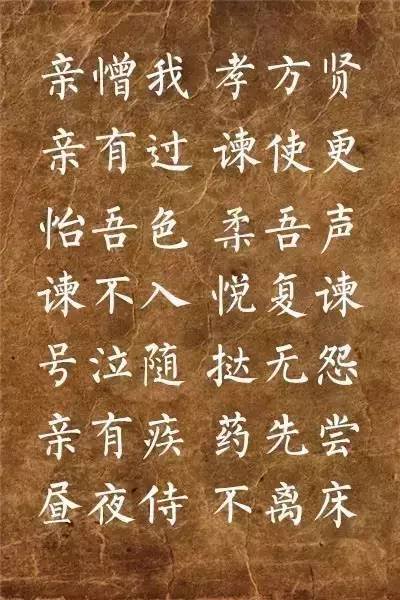 亲憎我 孝方贤
亲有过 谏使更
怡吾色 柔吾声
谏不入 悦复谏
号泣随 挞无怨
亲有疾 药先尝
昼夜侍 不离床